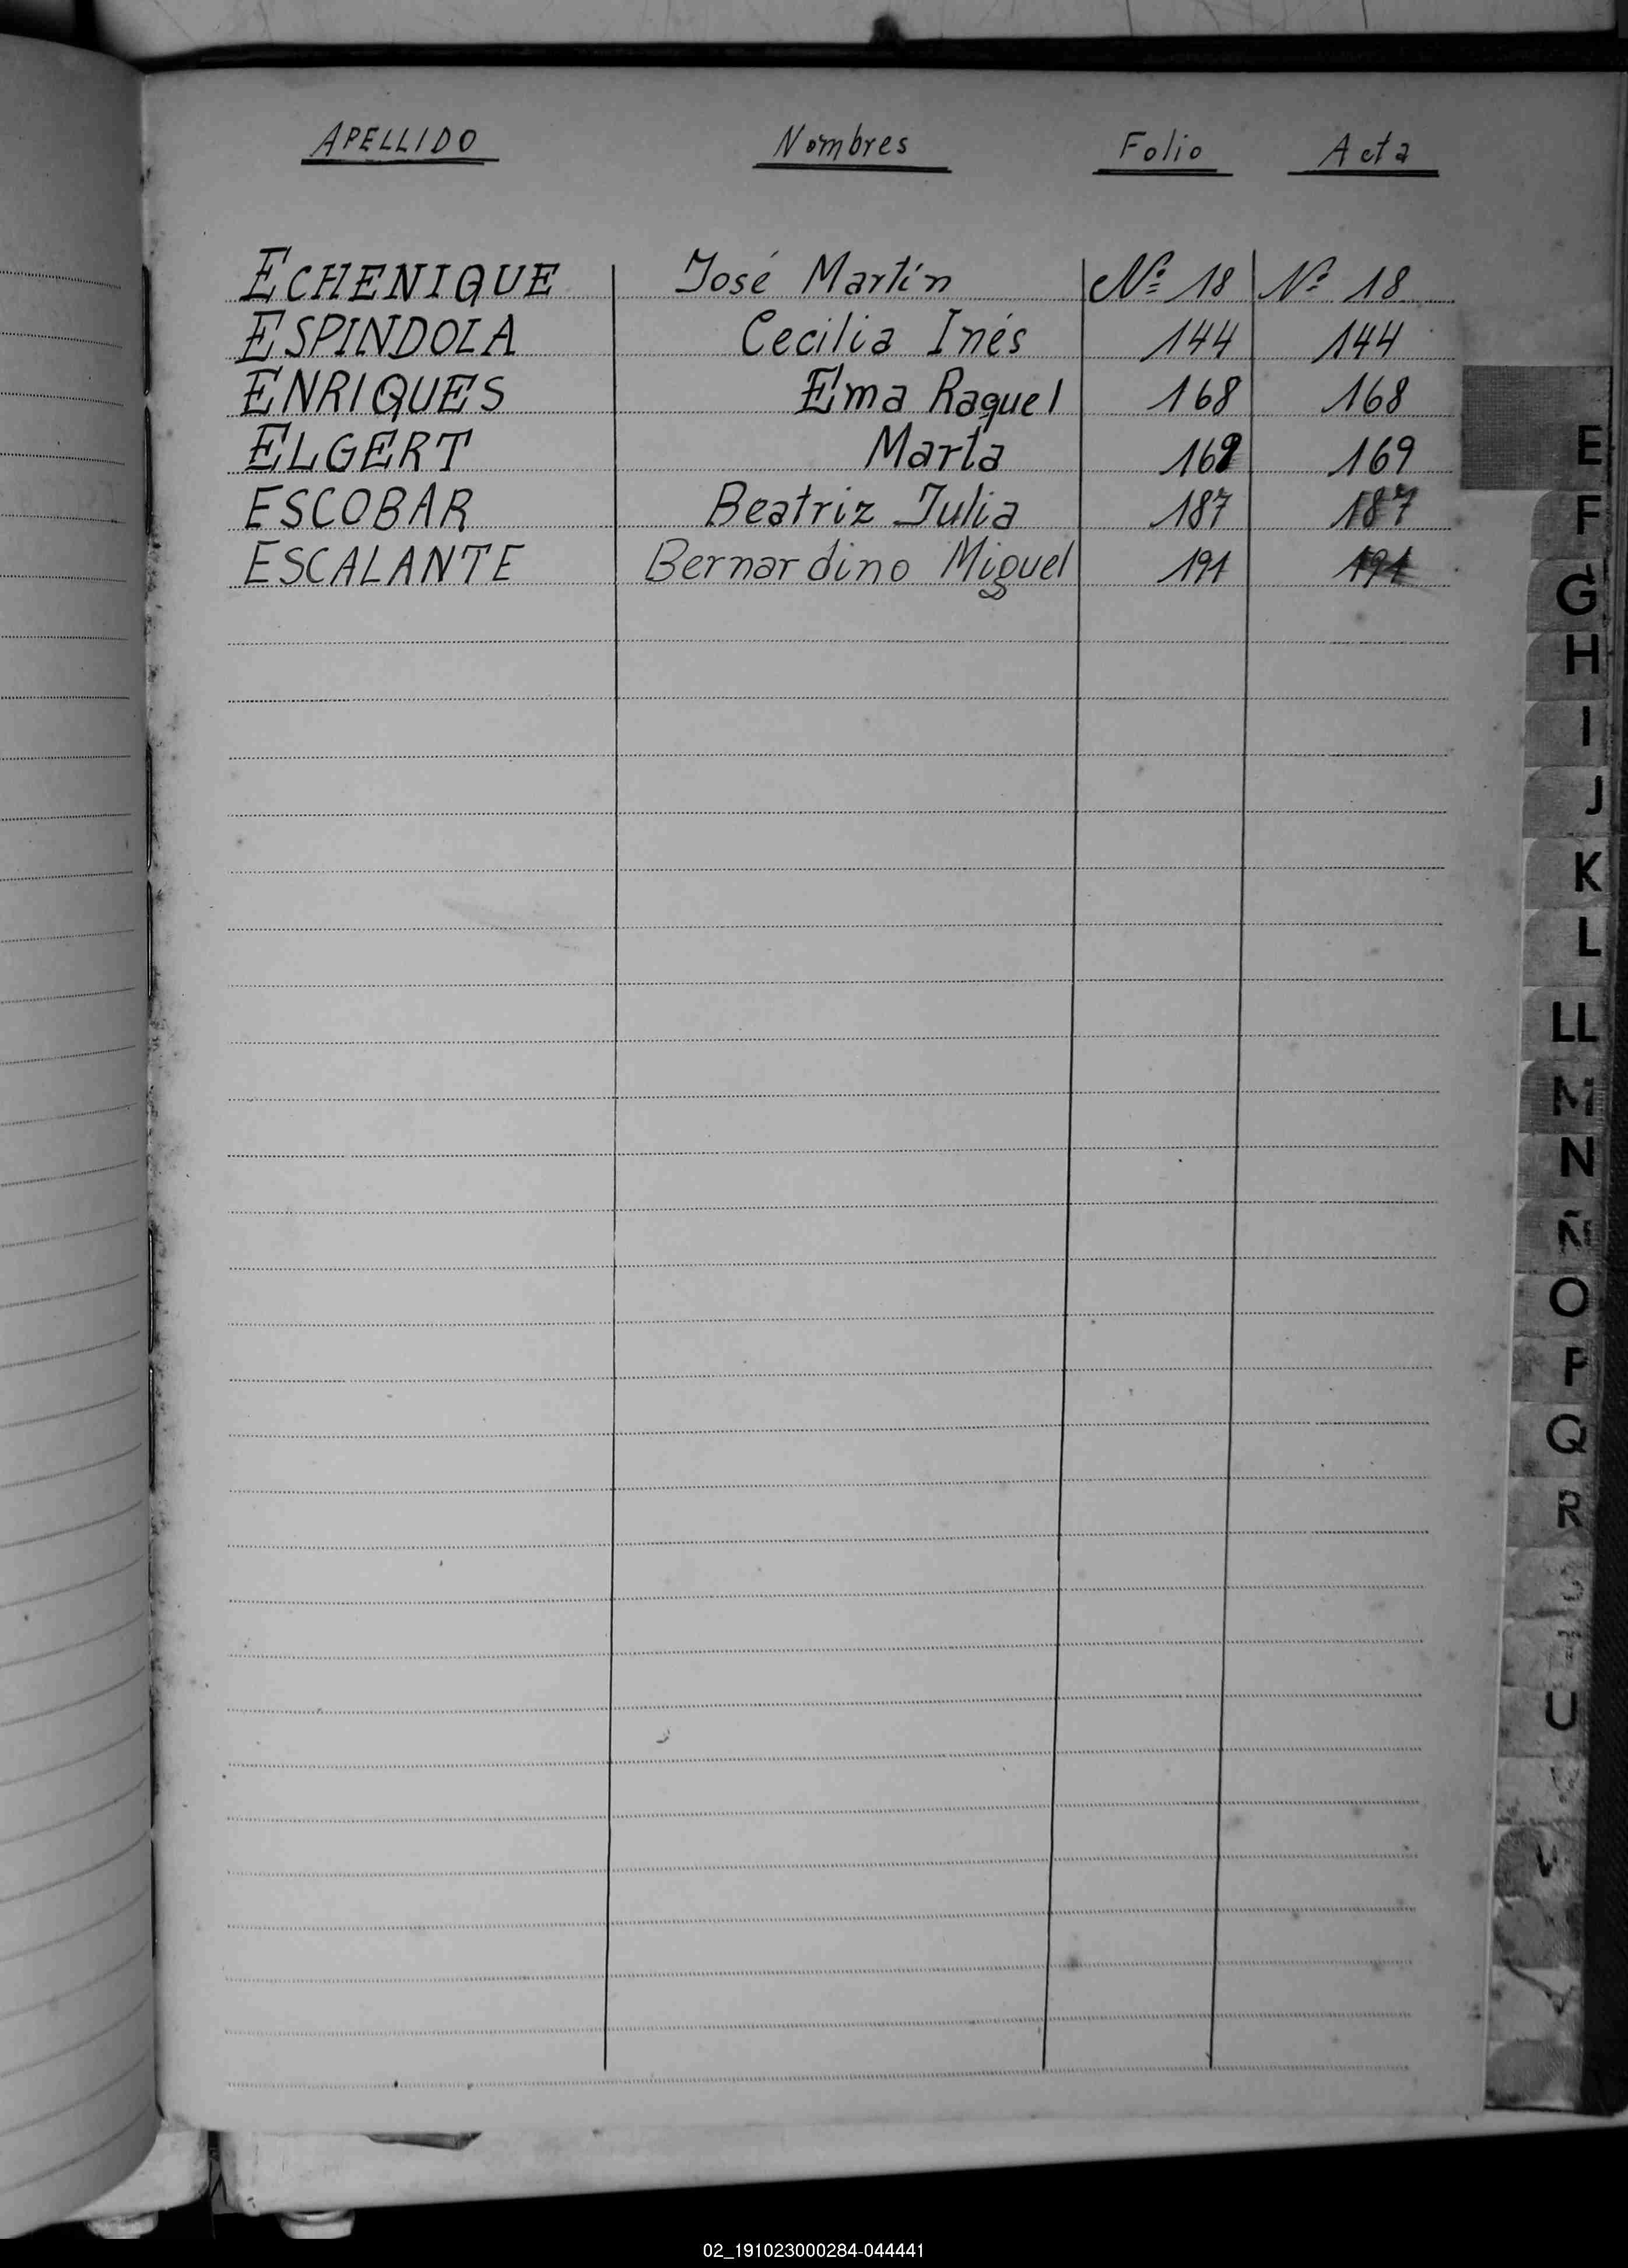 APELLIDO Nombres Folio Acta
ECHENIQUE José Martín Nº 18 Nº 18
ESPINDOLA Cecilia Inés 144 144
ENRIQUES Ema Raquel 168 168
ELGERT Marta 169 169
ESCOBAR Beatriz Julia 187 187
ESCALANTE Bernardino Miguel 191 191
E
F
G
H
I
J
K
L
LL
M
N
Ñ
O
P
Q
R
U
V
02_191023000284-044441